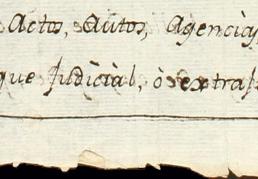 Acto, Autos, Agencias,
que Judicial, ò extra